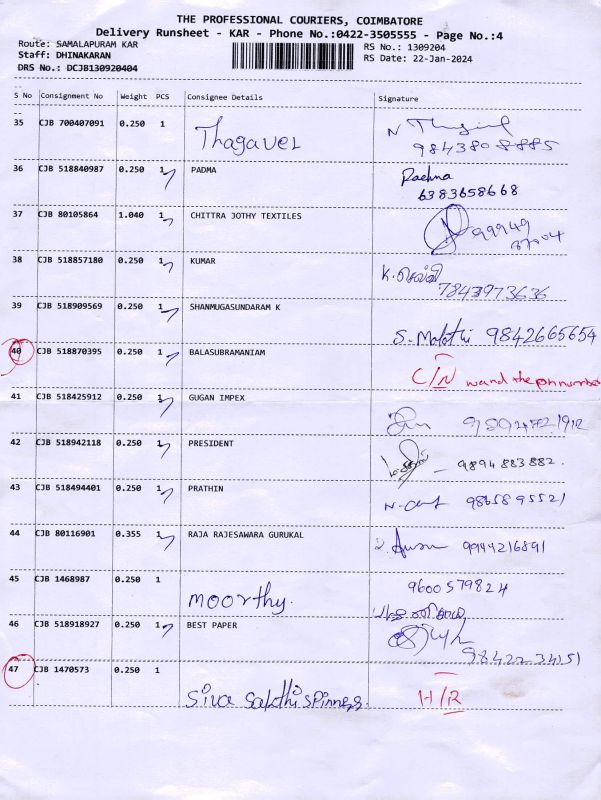 THE PROFESSIONAL COURIERS, COIMBATORE
Delivery Runsheet - KAR - Phone No.:0422-3505555 - Page No.:4
Route: SAMALAPURAM KAR
RS No.: 1309204
Staff: DHINAKARAN
RS Date: 22-Jan-2024
DRS No.: DCJB130920404
S No Consignment No Weight PCS Consignee Details Signature
35 CJB 700407091 0.250 1 Thagavel
9843808885
36 CJB 518840987 0.250 1 PADMA
6383658668
37 CJB 80105864 1.040 1 CHITTRA JOTHY TEXTILES 99949
37904
38 CJB 518857180 0.250 1 KUMAR
7843973636
39 CJB 518909569 0.250 1 SHANMUGASUNDARAM K
S. Malathi 9842665654
40 CJB 518870395 0.250 1 BALASUBRAMANIAM
C/N wand the ph number
41 CJB 518425912 0.250 1 GUGAN IMPEX
42 CJB 518942118 0.250 1 PRESIDENT
9894883882.
43 CJB 518494401 0.250 1 PRATHIN
9865895521
44 CJB 80116901 0.355 1 RAJA RAJESAWARA GURUKAL
9944216891
45 CJB 1468987 0.250 1 moorthy. 9600579824
46 CJB 518918927 0.250 1 BEST PAPER
9842234151
47 CJB 1470573 0.250 1
Siva Sakthi Spinners H/R